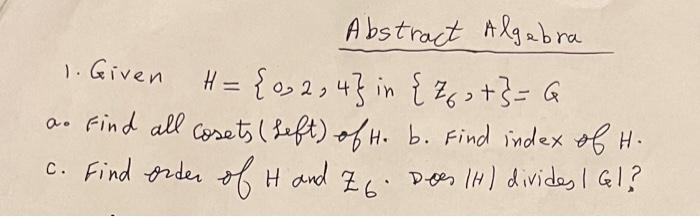 Abstract Algebra
1. Given H = {0, 2, 4} in {Z₆, +} = G
a. Find all cosets (Left) of H. b. Find index of H.
c. Find order of H and Z₆. Does |H| divides |G|?